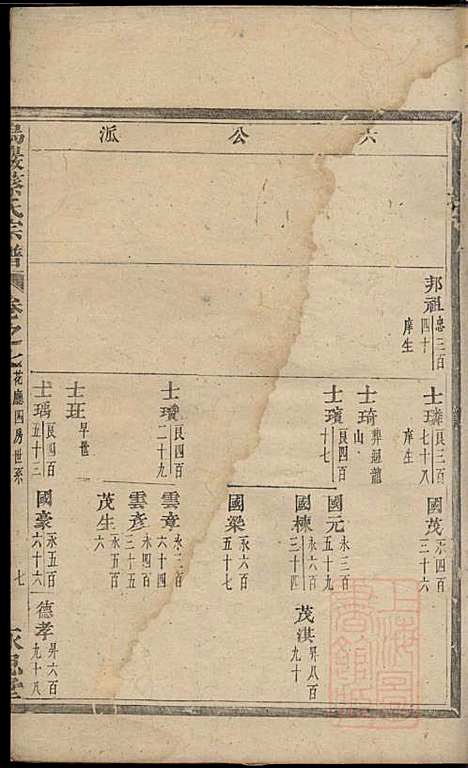 六公派
邦祖 忠三百四十 庠生
士璘 良三百七十八 庠生
士琦 葬迴龍山
士璸 良四百十七
士瓚 良四百二十九
士班 早世
士瑀 良四百五十三
國茂 永四百三十六
國元 永三百五十九
國棟 永六百三十四
國梁 永六百五十七
雲章 永三百六十四
雲彥 永四百三十五
茂生 永五百六
國豪 永五百六十六
茂淇 昇八百九十
德孝 昇六百九十八
蔡氏宗譜
卷之七
花廳四房世系
七
上海圖書館藏